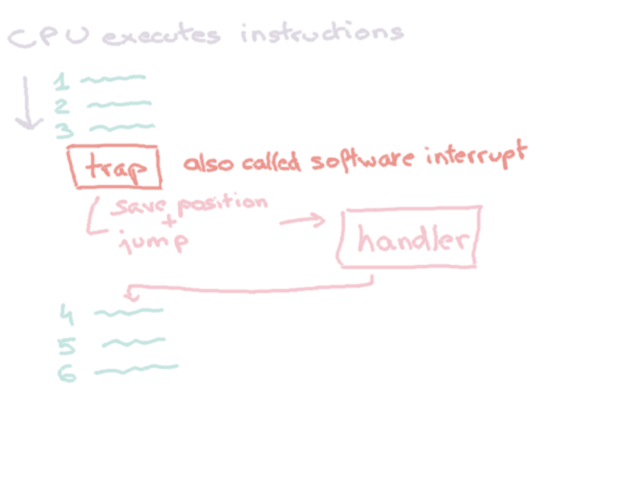 CPU executes instructions
1
2
3
trap also called software interrupt
save position
+
jump
handler
4
5
6